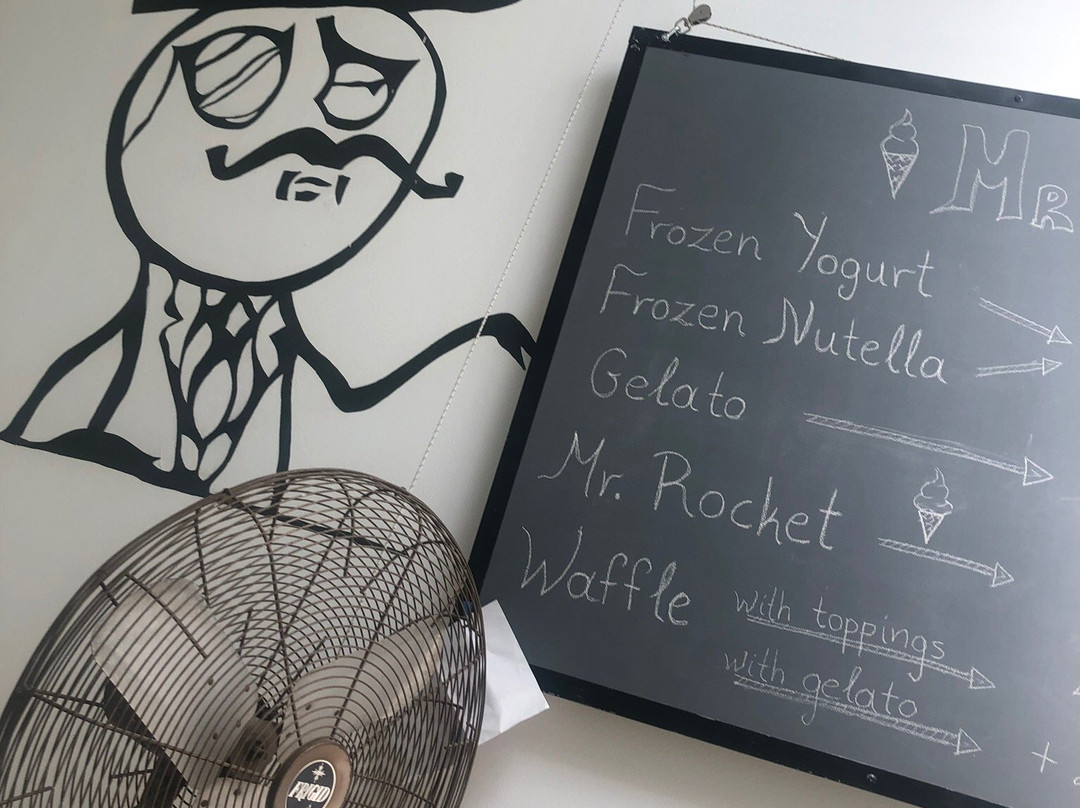 MR
Frozen Yogurt
Frozen Nutella
Gelato
Mr. Rocket
Waffle with toppings
with gelato
+
FRIGID